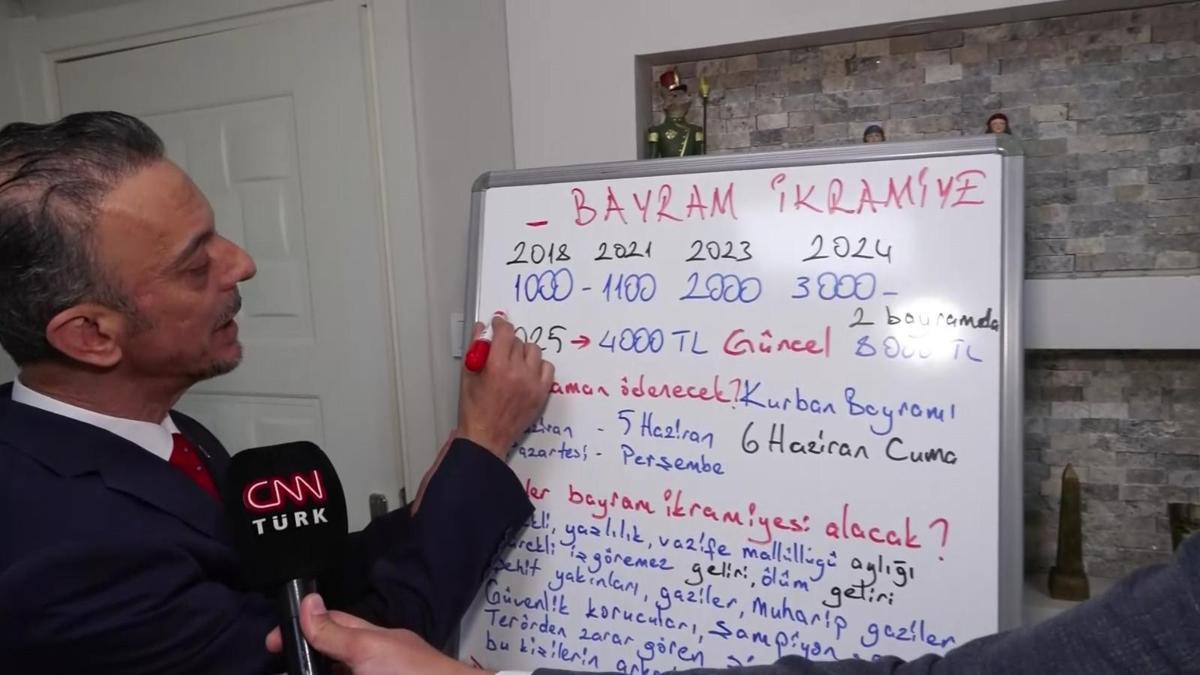 - BAYRAM İKRAMİYE
2018 2021 2023 2024
1000 - 1100 2000 3000 -
2 bayramda
→ 4000 TL Güncel 8000 TL
ödenecek? Kurban Bayramı
- 5 Haziran 6 Haziran Cuma
- Perşembe
bayram ikramiyesi alacak?
yazlılık, vazife mallüllüğü aylığı
izgöremez geliri, ölüm getiri
yakınları, gaziler, muharip gaziler
Güvenlik korucuları, şampiyon
Terörden zarar gören
bu kizilerin
CNN
TÜRK